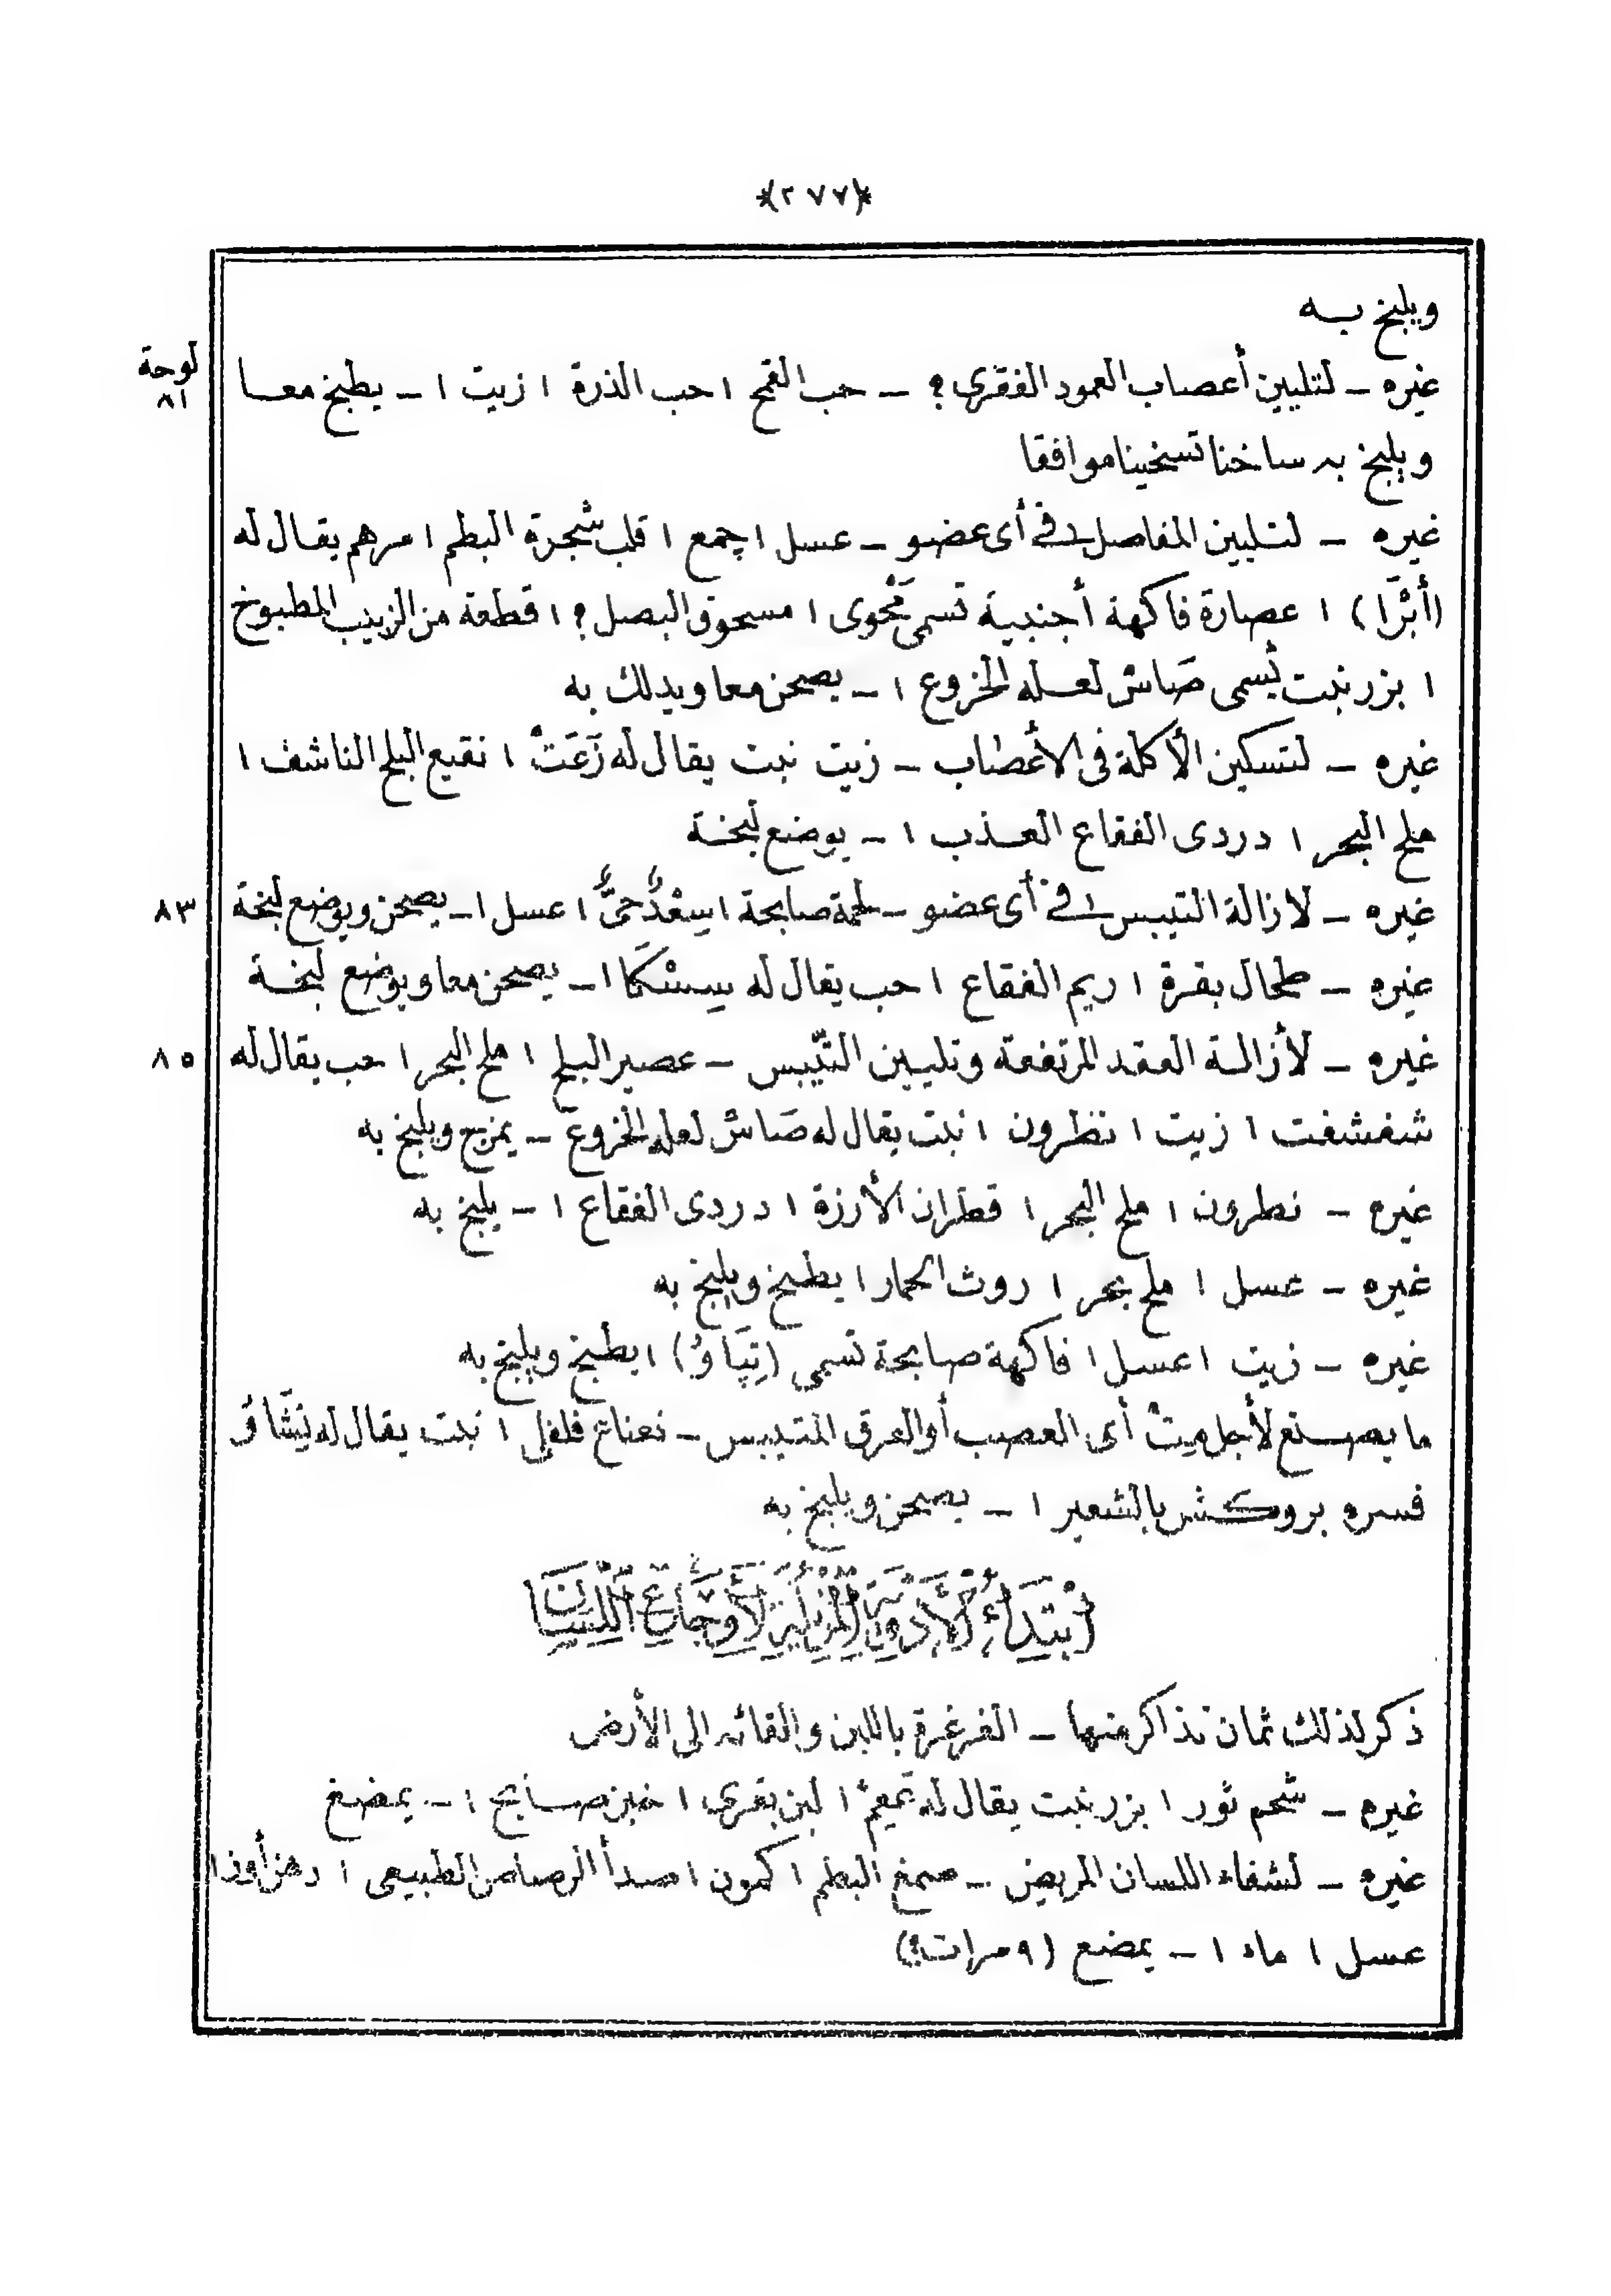 ﴿٢٧٧﴾
ويلبخ به
لوحة ٨١
غيره – لتليين أعصاب العمود الفقرى ؟ – حب القمح ١ حب الذرة ١ زيت ١ – يطبخ معا
ويلبخ به ساخنا تسخينا موافقا
غيره – لتليين المفاصل فى أى عضو – عسل ١ جمع ١ قلب شجرة البطم ١ مرهم يقال له
(أَبْرَا) ١ عصارة فاكهة أجنبية تسمى مَخْوى ١ مسحوق البصل ؟ ١ قطعة من الزبيب المطبوخ
١ بزر نبت يُسمى صَاسْ لعله الخروع ١ – يصحن معا ويدلك به
غيره – لتسكين الأكلة فى الأعطاب – زيت نبت يقال له زَعَتْ ١ نقيع البلح الناشف ١
ملح البحر ١ دردى الفقاع العذب ١ – يوضع لبخة
٨٣
غيره – لازالة التيبس فى أى عضو – لحمة صابحة ١ سِعْدٌ حَىٌّ ١ عسل ١ – يصحن ويوضع لبخة
غيره – طحال بقرة ١ ريم الفقاع ١ حب يقال له سِسْكَا ١ – يصحن معا ويوضع لبخة
٨٥
غيره – لأزالة العقد المرتفعة وتليين التيّبس – عصير البلح ١ ملح البحر ١ حب يقال له
شفشفت ١ زيت ١ نظرون ١ نبت يقال له صَاسْ لعله الخروع – يمزج ويلبخ به
غيره – نطرون ١ ملح البحر ١ قطران الأرزة ١ دردى الفقاع ١ – يلبخ به
غيره – عسل ١ ملح بحر ١ روث الحمار ١ يطبخ ويلبخ به
غيره – زيت ١ عسل ١ فاكهة صابحة تسمى (تِپَاوُ) ١ يطبخ ويلبخ به
ما يصنع لأجل مِتْ أى العصب أو العرق المتيبس – نعناع فلفلى ١ نبت يقال له نِشَاوُ
فسره بروكش بالشعير ١ – يصحن ويلبخ به
اِبْتِدَاءُ الْأَدْوِيَةِ الْمُزِيلَةِ لِأَوْجَاعِ اللِّسَانِ
ذكر لذلك ثمان تذاكر منها – الغرغرة باللبن والقائه الى الأرض
غيره – شحم ثور ١ بزر نبت يقال له ١ لبن بقرى ١ خبز صابح ١ – يمضغ
غيره – لشفاء اللسان المريض – صمغ البطم ١ كمون ١ صدأ الرصاص الطبيعى ١ دهن أوز ١
عسل ١ ماء ١ – يمضع (٩ مرات؟)